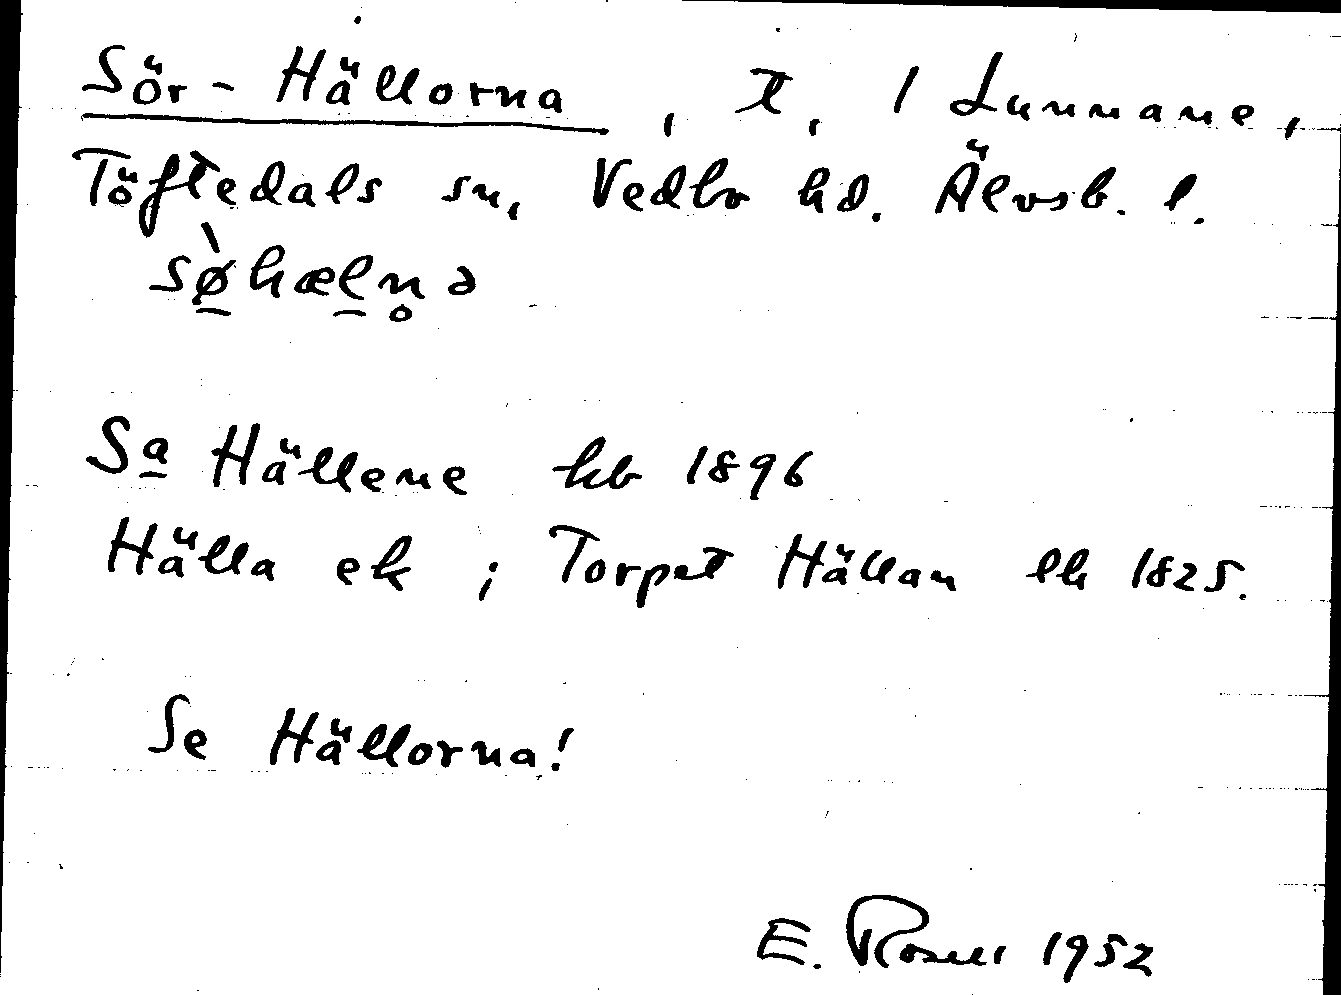 Sör-Hällorna, t, / Lunnane,
Töftedals sn, Vedbo hd. Älvsb. l.
sø̠̀hæl̠n̥ə
Sa Hällene kb 1896
Hälla ek ; Torpet Hällan lh 1825.
Se Hällorna!
E. Rosell 1952